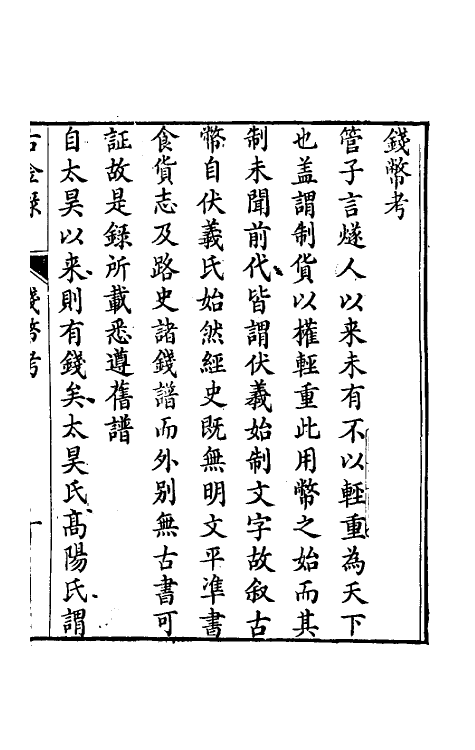 錢幣考
管子言燧人以来未有不以輕重為天下
也盖謂制貨以權輕重此用幣之始而其
制未聞前代皆謂伏義始制文字故叙古
幣自伏義氏始然經史既無明文平凖書
食貨志及路史諸錢譜而外別無古書可
証故是録所載悉遵舊譜
自太昊以来則有錢矣太昊氏高陽氏謂
古金録
錢幣考